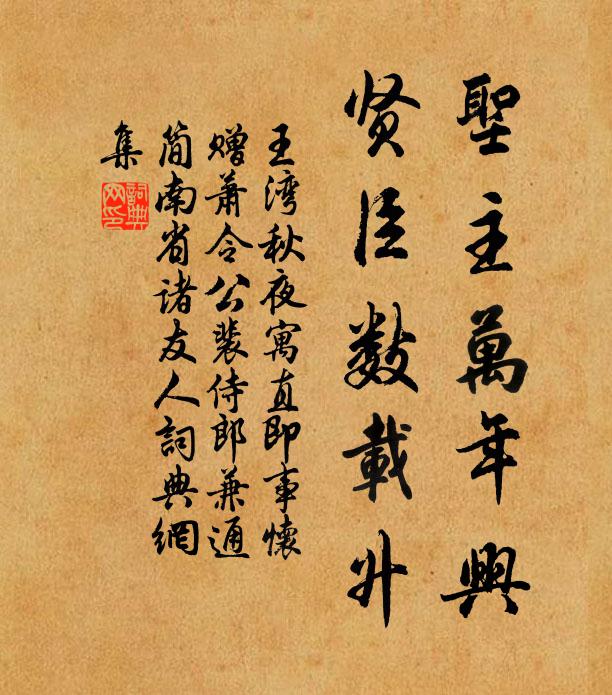 聖主萬年興
贤臣數載升
王湾秋夜寓直即事懷
赠萧令公裴侍郎兼通
简南省诸友人詞典網
集
詞典網印